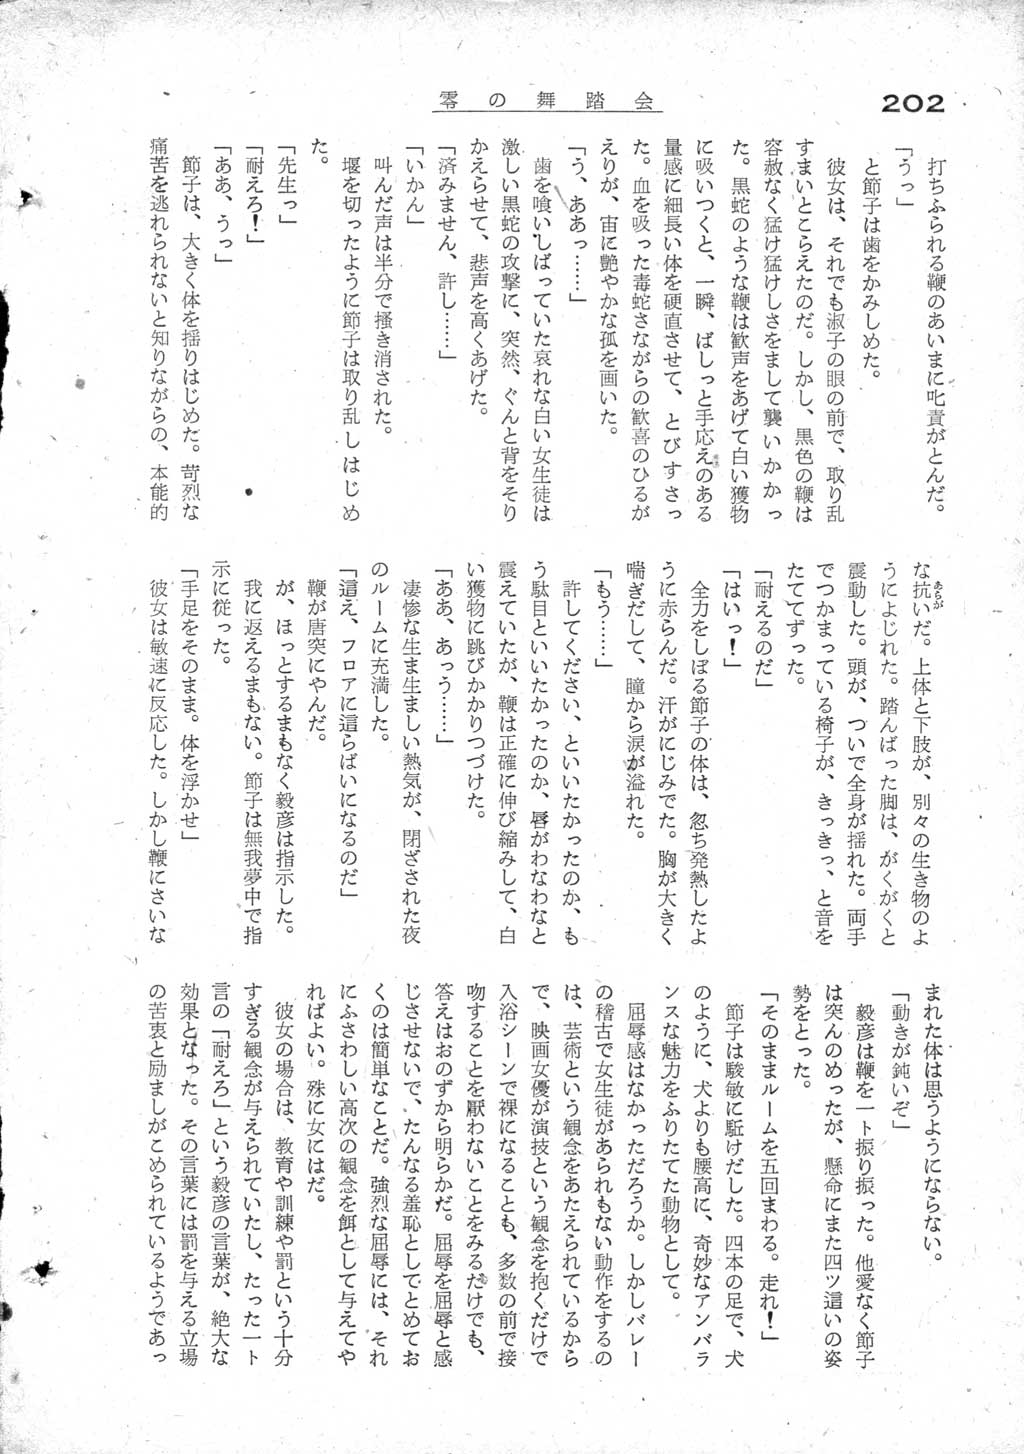 202
零の舞踏会
打ちふられる鞭のあいまに叱責がとんだ。
「うっ」
と節子は歯をかみしめた。
彼女は、それでも淑子の眼の前で、取り乱
すまいとこらえたのだ。しかし、黒色の鞭は
容赦なく猛け猛けしさをまして襲いかかっ
た。黒蛇のような鞭は歓声をあげて白い獲物
に吸いつくと、一瞬、ばしっと手応えのある
量感に細長い体を硬直させて、とびすさっ
た。血を吸った毒蛇さながらの歓喜のひるが
えりが、宙に艶やかな孤を画いた。
「う、ああっ……」
歯を喰いしばっていた哀れな白い女生徒は
激しい黒蛇の攻撃に、突然、ぐんと背をそり
かえらせて、悲声を高くあげた。
「済みません、許し……」
「いかん」
叫んだ声は半分で掻き消された。
堰を切ったように節子は取り乱しはじめ
た。
「先生っ」
「耐えろ！」
「ああ、うっ」
節子は、大きく体を揺りはじめだ。苛烈な
痛苦を逃れられないと知りながらの、本能的
な抗いだ。上体と下肢が、別々の生き物のよ
うによじれた。踏んばった脚は、がくがくと
震動した。頭が、ついで全身が揺れた。両手
でつかまっている椅子が、きっきっ、と音を
たててずった。
「耐えるのだ」
「はいっ！」
全力をしぼる節子の体は、忽ち発熱したよ
うに赤らんだ。汗がにじみでた。胸が大きく
喘ぎだして、瞳から涙が溢れた。
「もう……」
許してください、といいたかったのか、も
う駄目といいたかったのか、唇がわなわなと
震えていたが、鞭は正確に伸び縮みして、白
い獲物に跳びかかりつづけた。
「ああ、あっう……」
凄惨な生ま生ましい熱気が、閉ざされた夜
のルームに充満した。
「這え、フロアに這らばいになるのだ」
鞭が唐突にやんだ。
が、ほっとするまもなく毅彦は指示した。
我に返えるまもない。節子は無我夢中で指
示に従った。
「手足をそのまま。体を浮かせ」
彼女は敏速に反応した。しかし鞭にさいな
まれた体は思うようにならない。
「動きが鈍いぞ」
毅彦は鞭を一ト振り振った。他愛なく節子
は突んのめったが、懸命にまた四ツ這いの姿
勢をとった。
「そのままルームを五回まわる。走れ！」
節子は駿敏に駈けだした。四本の足で、犬
のように、犬よりも腰高に、奇妙なアンバラ
ンスな魅力をふりたてた動物として。
屈辱感はなかっただろうか。しかしバレー
の稽古で女生徒があられもない動作をするの
は、芸術という観念をあたえられているから
で、映画女優が演技という観念を抱くだけで
入浴シーンで裸になることも、多数の前で接
吻することを厭わないことをみるだけでも、
答えはおのずから明らかだ。屈辱を屈辱と感
じさせないで、たんなる羞恥としてとめてお
くのは簡単なことだ。強烈な屈辱には、それ
にふさわしい高次の観念を餌として与えてや
ればよい。殊に女にはだ。
彼女の場合は、教育や訓練や罰という十分
すぎる観念が与えられていたし、たった一ト
言の「耐えろ」という毅彦の言葉が、絶大な
効果となった。その言葉には罰を与える立場
の苦衷と励ましがこめられているようであっ